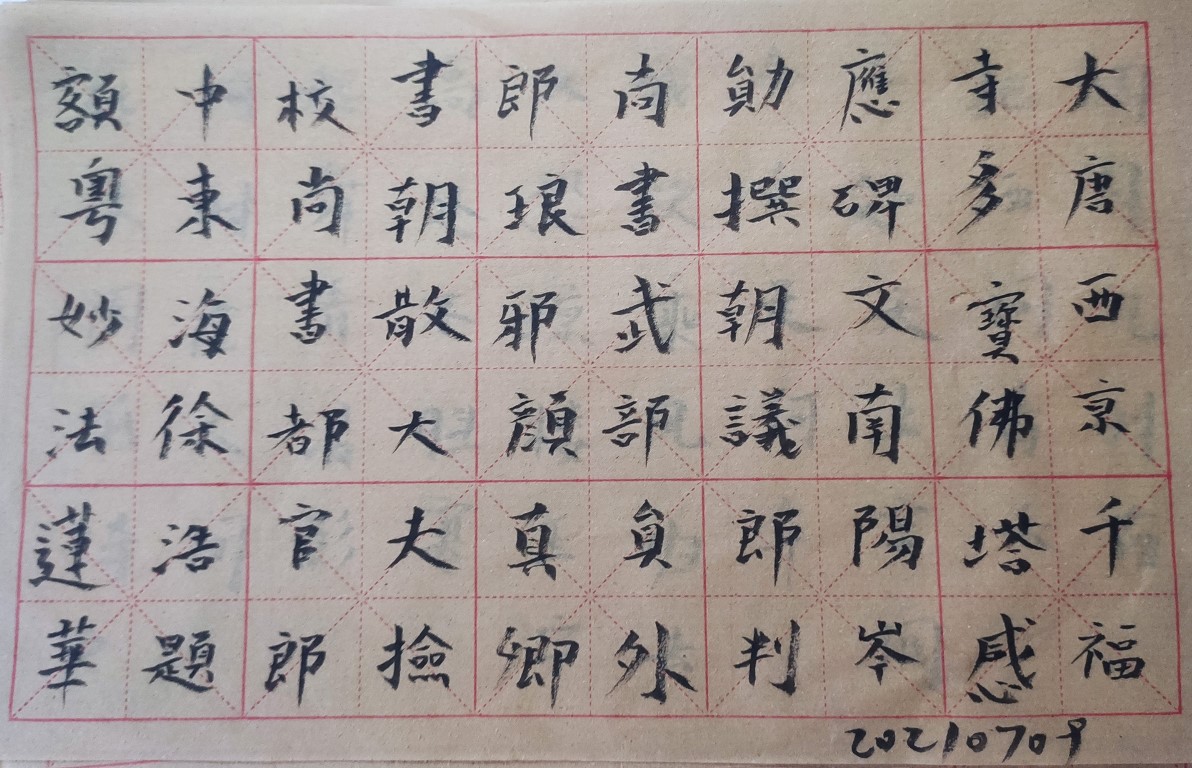 大唐西京千福
寺多寶佛塔感
應碑文南陽岑
勛撰朝議郎判
尚書武部員外
郎琅邪顏真卿
書朝散大夫撿
校尚書都官郎
中東海徐浩題
額粵妙法蓮華
20210709